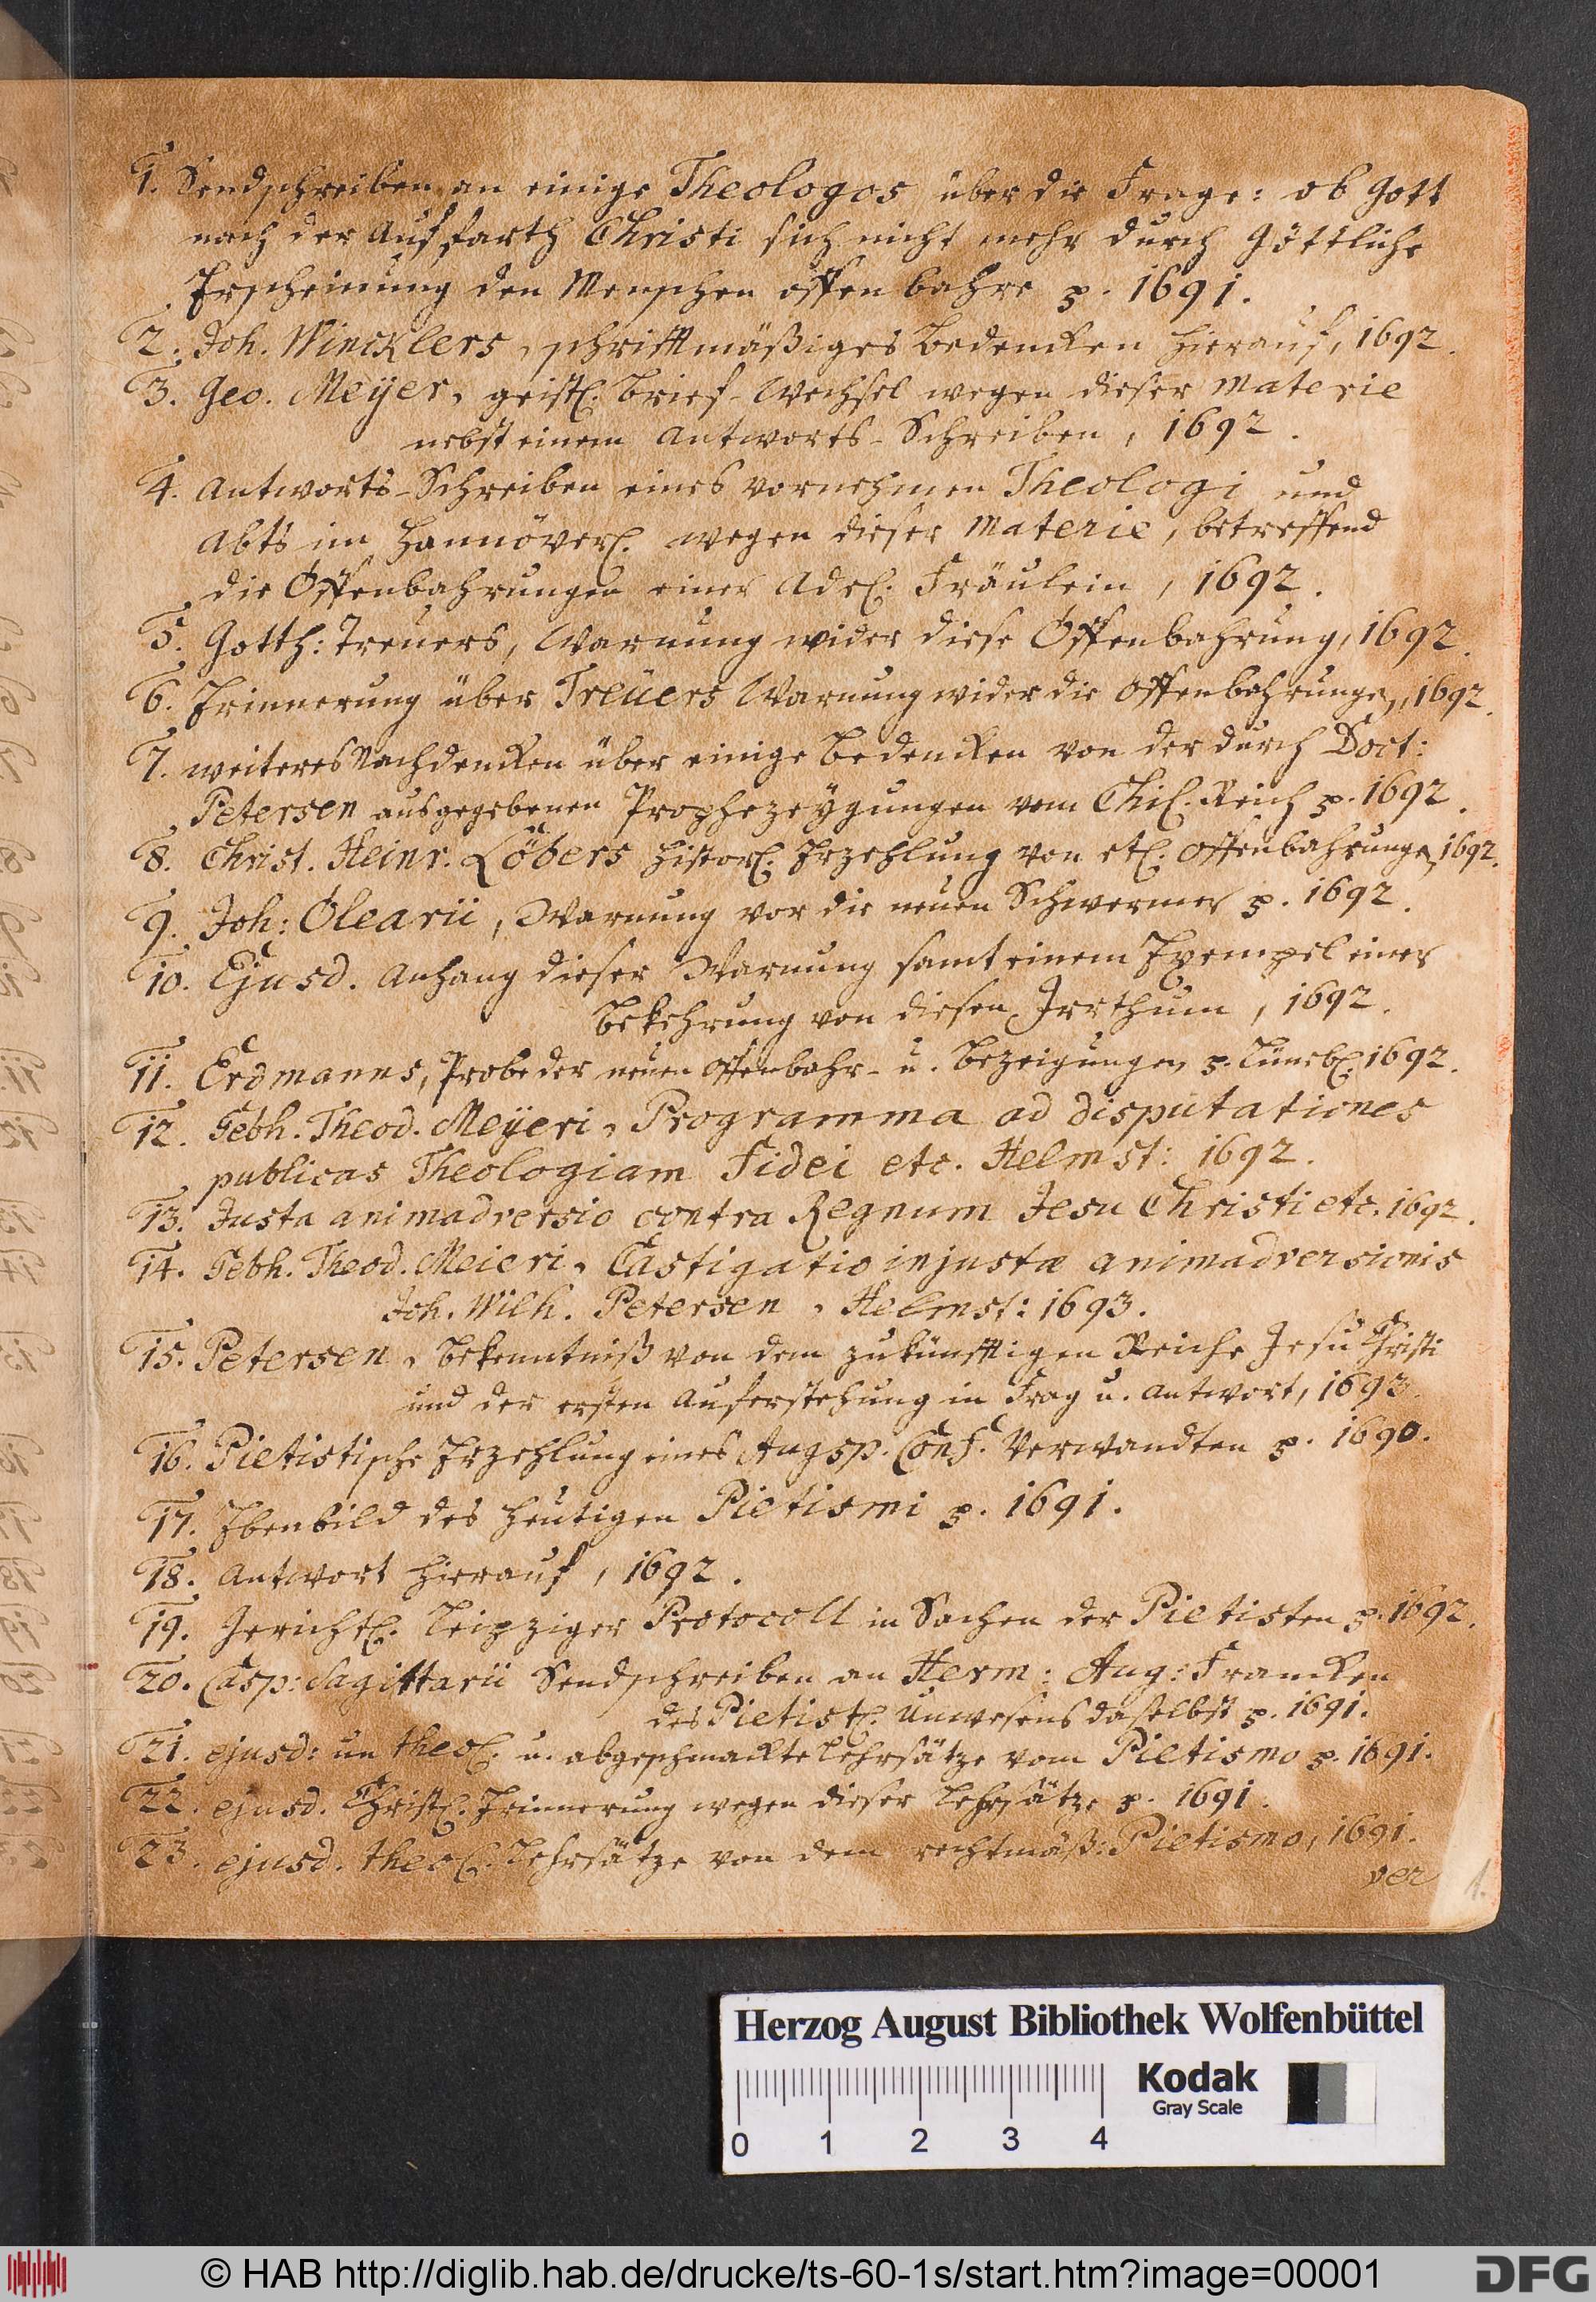 1. Sendschreiben an einige Theologos über die Frage: ob Gott
nach der Auffarth Christi sich nicht mehr durch Göttliche
Erscheinung den Menschen offenbahre p. 1691.
2. Joh. Wincklers, schrifftmäßiges Bedencken hierauf, 1692.
3. Geo. Meÿer, geistl. Brief-Wechsel wegen dieser Materie
nebst einem Antworts-Schreiben, 1692.
4. Antworts-Schreiben eines vornehmen Theologi und
Abts im Hannöverl. wegen dieser Materie, betreffend
die Offenbahrungen einer Adel. Fräulein, 1692.
5. Gotth: Treuers, Warnung wider diese Offenbahrung, 1692.
6. Erinnerung über Treuers Warnung wider die Offenbahrungen, 1692.
7. weiteres Nachdencken über einige Bedencken von der durch Doct:
Petersen ausgegebenen Prophezeÿgungen vom Chil. Reich p. 1692.
8. Christ. Heinr. Löbers histor. Erzehlung von etl. Offenbahrungen, 1692.
9. Joh: Olearii, Warnung vor die neuen Schwermer p. 1692.
10. Ejusd. Anhang dieser Warnung samt einem Exempel einer
Bekehrung von diesen Irrthum, 1692.
11. Erdmanns, Probe der neuen Offenbahr- u. Bezeigungen p. Lüneb. 1692.
12. Gebh. Theod. Meÿeri, Programma ad disputationes
publicas Theologiam Fidei etc. Helmst: 1692.
13. Justa animadversio contra Regnum Jesu Christi etc. 1692.
14. Gebh. Theod. Meieri, Castigatio injustæ animadversionis
Joh. Wilh. Petersen, Helmst: 1693.
15. Petersen, Bekenntniß von dem zukünfftigen Reiche Jesu Christi
und der ersten Auferstehung in Frag u. Antwort, 1693.
16. Pietistische Erzehlung eines Augsp. Conf. Verwandten p. 1690.
17. Ebenbild des heutigen Pietismi p. 1691.
18. Antwort hierauf, 1692.
19. Gerichtl. Leipziger Protocoll in Sachen der Pietisten p. 1692.
20. Casp: Sagittarii Sendschreiben an Herm: Aug: Francken
des Pietist. Unwesens daselbst p. 1691.
21. ejusd: un theol. u. abgeschmackte Lehrsätze vom Pietismo p. 1691.
22. ejusd. Christl. Erinnerung wegen dieser Lehrsätze p. 1691.
23. ejusd. theol. Lehrsätze von dem rechtmäß: Pietismo, 1691.
ver
1.
Herzog August Bibliothek Wolfenbüttel
Kodak
Gray Scale
0 1 2 3 4
© HAB http://diglib.hab.de/drucke/ts-60-1s/start.htm?image=00001
DFG